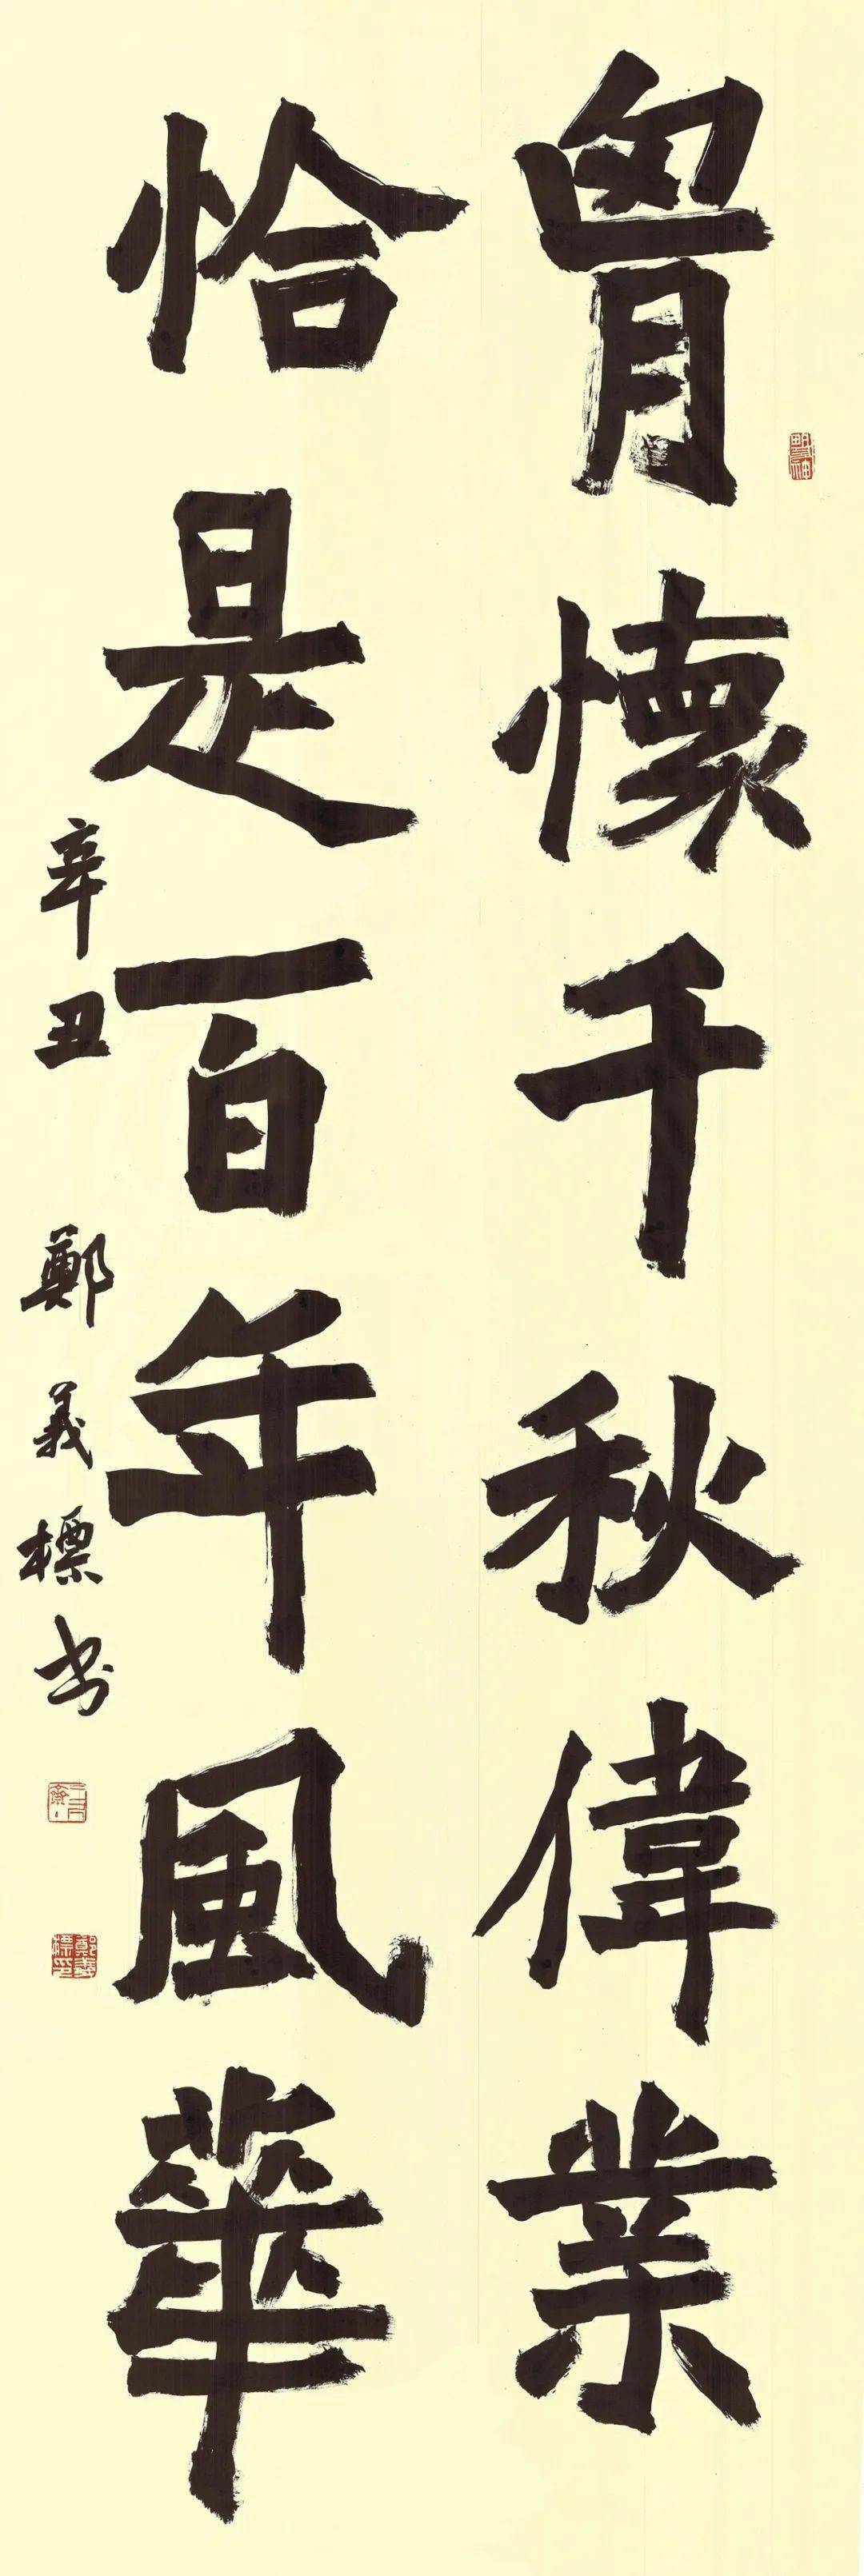 胷懷千秋偉業
恰是百年風華
辛丑 鄭義標书